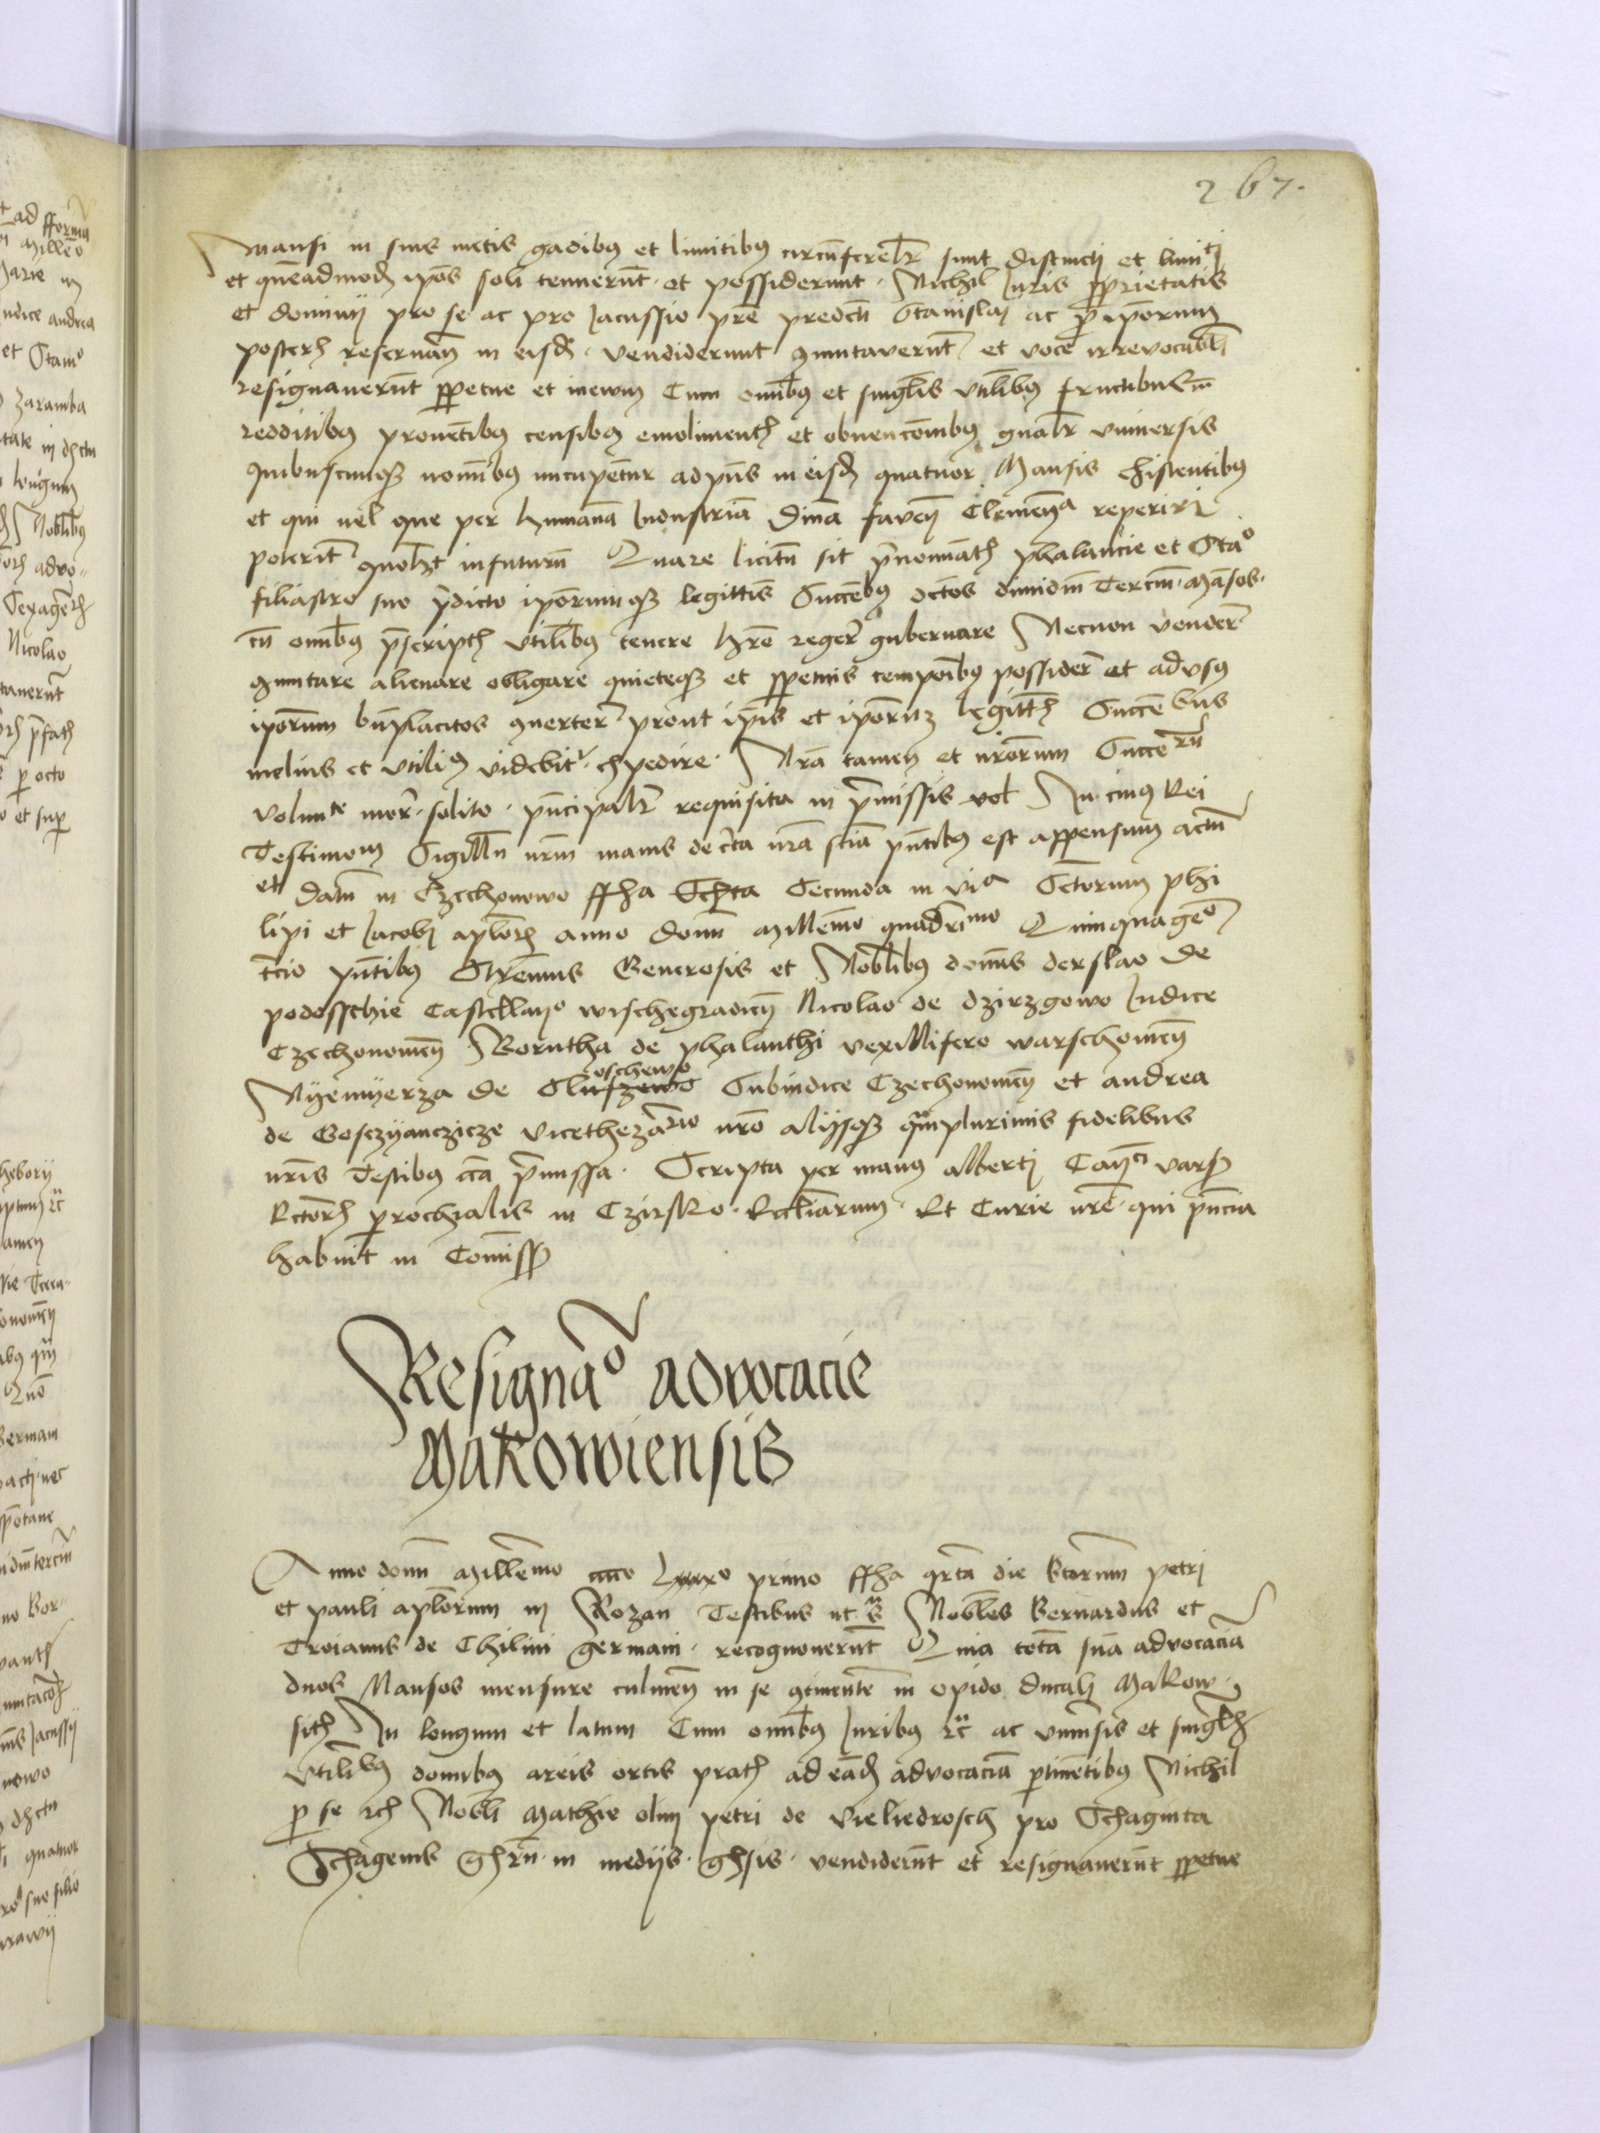 267.
mansi in suis metis gadibus et limitibus circumferentialiter sunt distincti et limitati
et quemadmodum ipsos soli tenuerunt et possiderunt Nichil Iuris proprietatis
et dominii pro se ac pro Jacussio patre predicti Stanislai ac pro ipsorum
posteris reservantes in eisdem vendiderunt commutaverunt et voce irrevocabili
resignaverunt perpetue et inewum Cum omnibus et singulis utilibus fructibus
redditibus proventibus censibus emolimentis et obvencionibus generaliter universis
Quibuscumque nominibus nuncupentur ad presens in eisdem quatuor Mansis existentibus
et qui vel que per humanam Industriam divina favente Clemencia reperiri
poterint quolibet in futurum Quare licitum sit prenominatis phalancie et Stanislao
filiastro suo predicto ipsorumque legittimis Successoribus dictos dimidium Tercium Mansos
cum omnibus prescriptis utilibus tenere habere regere gubernare Necnon vendere
commutare alienare obligare quieteque et perpetuis temporibus possidere et ad usus
ipsorum beneplacitos convertere prout ipsis et ipsorum legittimis Successoribus
melius et utilius videbitur expedire Nostra tamen et nostrorum Successorum
voluntate more solito principaliter requisita in premissis In cuius Rei
Testimonium Sigillum nostrum maius de certa nostra sciencia presentibus est appensum actum
et Datum in Czechonowo feria Secunda in vigilia Sanctorum Phi
lipi et Jacobi apostolorum anno domini Millesimo quadringentesimo Quinquagesimo
tercio presentibus Strenuis Generosis et Nobilibus dominis derslao de
podosschie Castellano wischegradiensi Nicolao de dzirzgowo Judice
Czechonowiensi Borutha de phalanthi vexillifero warschowiensi
Nyemyerza de Gluoschewo Subiudice Czechonowiensi et andrea
de Gosczyanczicze vicethezaurario nostro aliisque quam plurimis fidelibus
nostris Testibus circa premissa Scripta per manus alberti Canonici
Rectoris parochialis in Czirsko Ecclesiarum Et Curie nostre qui presencia
habuit in Commisso
Resignacio advocacie
Makowiensis
Anno domini Millesimo primo feria quarta die Sanctorum petri
et pauli apostolorum in Rozan Testibus ut supra Nobiles Bernardus et
Troianus de Chilini germani recognoverunt Quia totam suam advocaciam
duos Mansos mensure culmensis in se continentem in opido ducali Makow
sitam In longum et latum Cum omnibus Iuribus etc ac universis et singulis
utilibus domibus areis ortis pratis ad eandem advocaciam pertinentibus Nichil
pro se etc Nobili Mathie olim petri de Vieliedrosch pro Sexaginta
Sexagenis grossorum in mediis grossis vendiderunt et resignaverunt perpetue